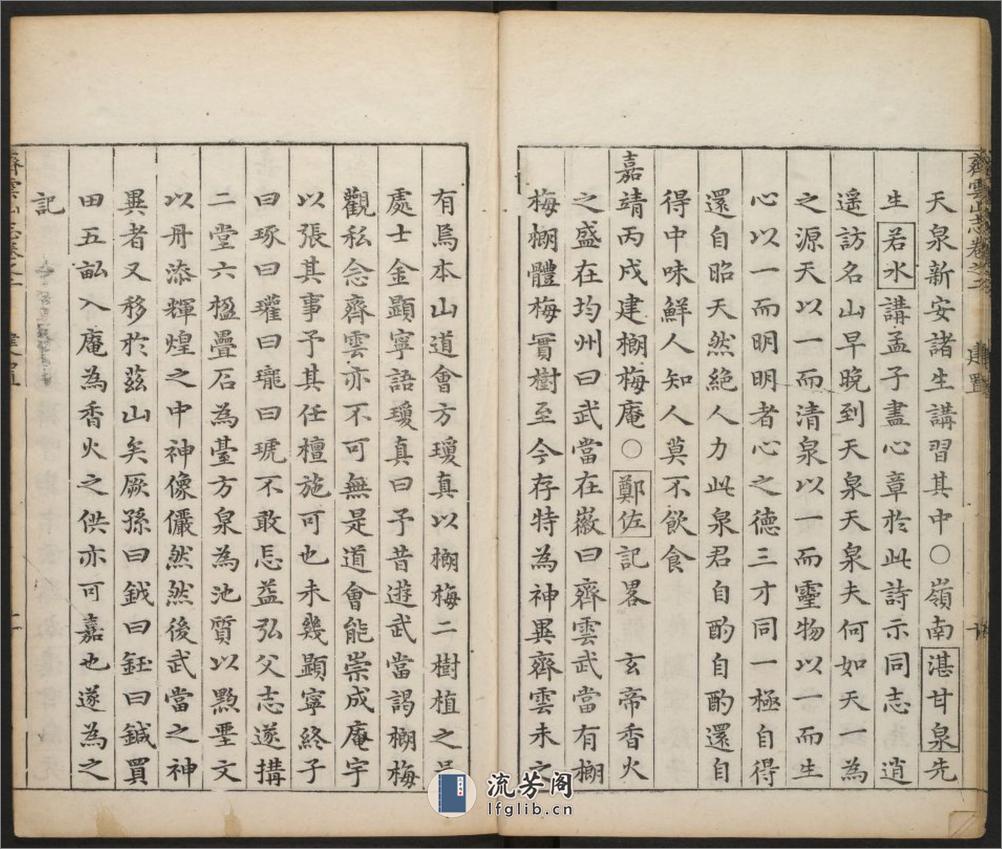 齊雲山志卷之 建置
天泉新安諸生講習其中○嶺南湛甘泉先
生若水講孟子盡心章於此詩示同志 逍
遥訪名山早晚到天泉天泉夫何如天一為
之源天以一而清泉以一而靈物以一而生
心以一而明明者心之德三才同一極自得
還自昭天然絕人力此泉君自酌自酌還自
得中味鮮人知人莫不飲食
嘉靖丙戌建榔梅庵○鄭佐記畧 玄帝香火
之盛在均州曰武當在徽曰齊雲武當有榔
梅榔體梅實樹至今存特為神異齊雲未之
有焉本山道會方瓊真以榔梅二樹植之
處士金顯寧語瓊真曰予昔遊武當謁榔梅
觀私念齊雲亦不可無是道會能崇成庵宇
以張其事予其任檀施可也未幾顯寧終子
曰琢曰瓘曰瓏曰琥不敢忘益弘父志遂搆
二堂六楹疊石為臺方泉為池質以黝堊文
以丹添輝煌之中神像儼然然後武當之神
異者又移於茲山矣厥孫曰鉞曰鈺曰鍼買
田五畝入庵為香火之供亦可嘉也遂為之
記
齊雲山志卷之二 建置
流芳阁
lfglib.cn